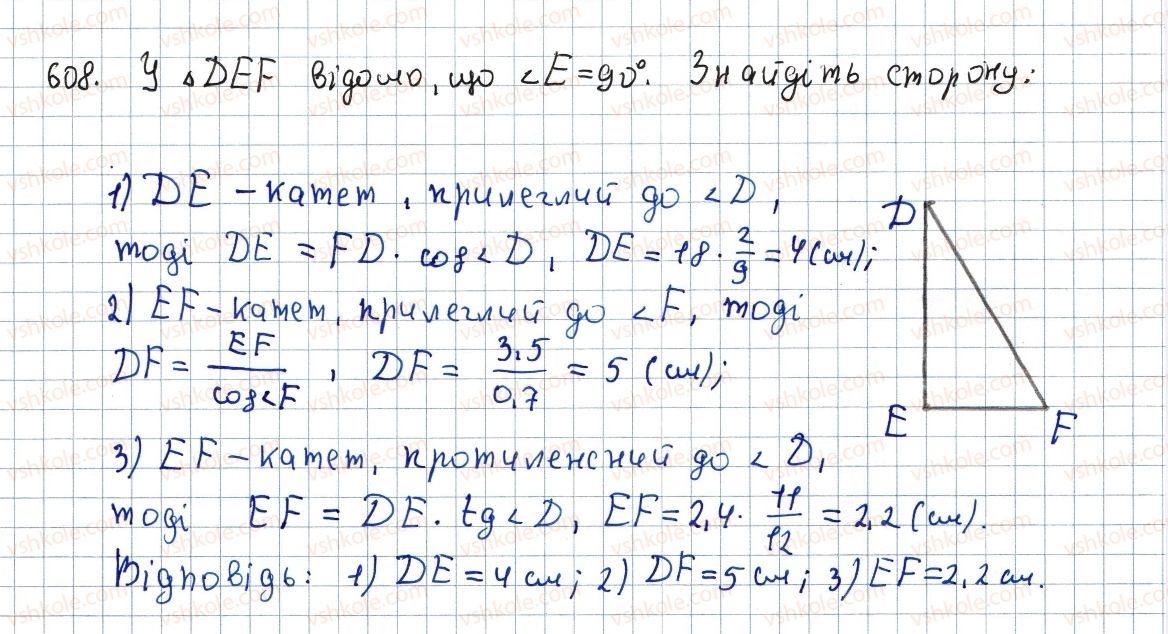 608. У △DEF відомо, що ∠E=90°. Знайдіть сторону:
1) DE – катет, прилеглий до ∠D,
тоді DE = FD · cos∠D, DE = 18 · 2/9 = 4 (см);
2) EF – катет, прилеглий до ∠F, тоді
DF = EF/cos∠F, DF = 3,5/0,7 = 5 (см);
3) EF – катет, протилежний до ∠D,
тоді EF = DE · tg∠D, EF = 2,4 · 11/12 = 2,2 (см).
Відповідь: 1) DE = 4 см; 2) DF = 5 см; 3) EF = 2,2 см.
D
E
F
vshkole.com